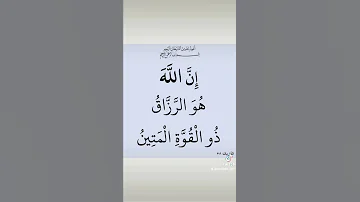 إِنَّ اللَّهَ
هُوَ الرَّزَّاقُ
ذُو الْقُوَّةِ الْمَتِينُ